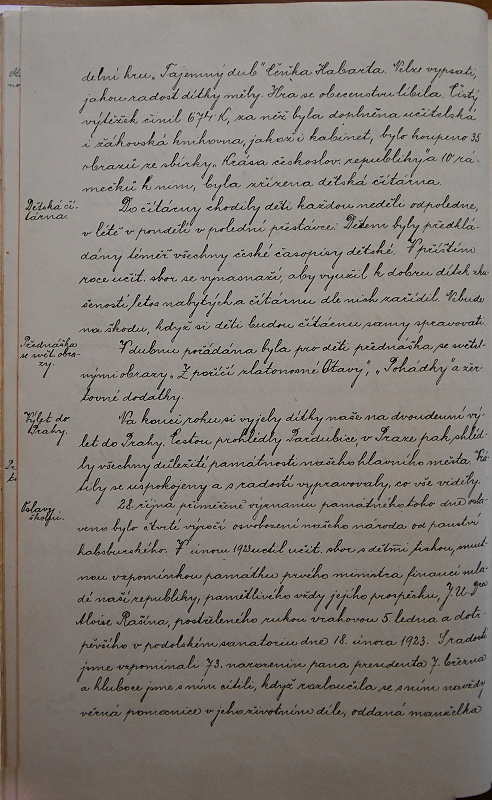 delní hru „Tajemný dub" Čeňka Habarta. Nelze vypsati,
jakou radost dítky měly. Hra se obecenstvu líbila. Čistý
výtěžek činil 674 K, za něž byla doplněna učitelská
i žákovská knihovna, jakož i kabinet, bylo koupeno 35
obrazů ze sbírky „Krása českoslov. republiky" a 10 rá-
mečků k nim, byla zřízena dětská čítárna.
Dětská čí-
tárna.
Do čítárny chodily děti každou neděli odpoledne,
v létě v pondělí v polední přestávce. Dětem byly předklá-
dány téměř všechny české časopisy dětské. V příštím
roce učit. sbor se vynasnaží, aby využil k dobru dítek zku-
šeností letos nabytých a čítárnu dle nich zařídil. Nebude
na škodu, když si děti budou čítárnu samy spravovati.
Přednáška
se svět. obra-
zy.
V dubnu pořádána byla pro děti přednáška se světel-
nými obrazy „Z poříčí zlatonosné Otavy", „Pohádky" a žer-
tovné dodatky.
Výlet do
Prahy.
Na konci roku si vyjely dítky naše na dvoudenní vý-
let do Prahy. Cestou prohlédly Pardubice, v Praze pak shléd-
ly všechny důležité památnosti našeho hlavního města. Vrá-
tily se uspokojeny a s radostí vypravovaly, co vše viděly.
Oslavy
školní.
28. října přiměřeně významu památného toho dne osla-
veno bylo čtvrté výročí osvobození našeho národa od panství
habsburského. V únoru 1923 uctil učit. sbor s dětmi tichou, smut-
nou vzpomínkou památku prvého ministra financí mla-
dé naší republiky, pamětlivého vždy jejího prospěchu, J.U.Dra
Aloise Rašína, postřeleného rukou vrahovou 5. ledna a dotr-
pěvšího v podolském sanatoriu dne 18. února 1923. S radostí
jsme vzpomínali 73. narozenin pana presidenta 7. března
a hluboce jsme s ním cítili, když rozloučila se s ním navždy
věrná pomocnice v jeho životním díle, oddaná manželka